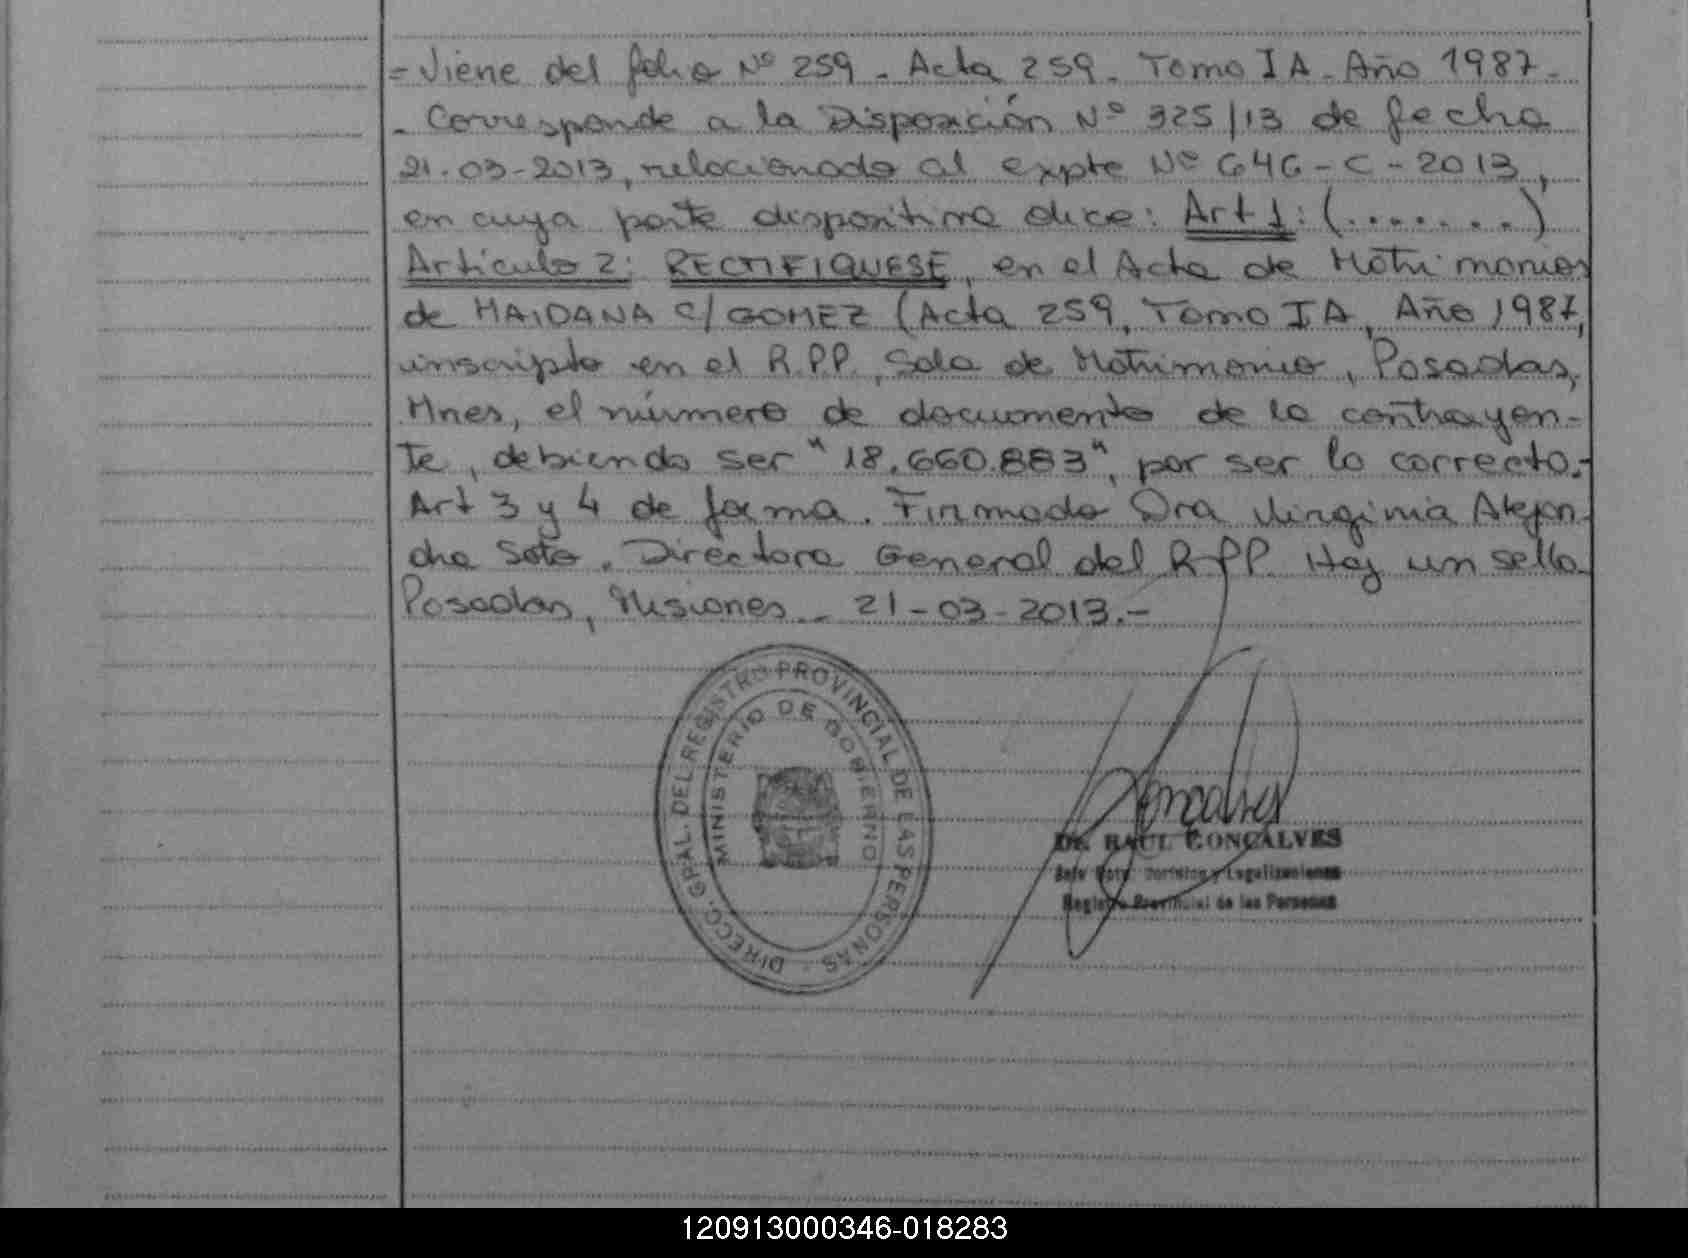 = Viene del folio Nº 259. Acta 259. Tomo IA. Año 1987.
. Corresponde a la Disposición Nº 325/13 de fecha
21-03-2013, relacionado al expte Nº 646-C-2013,
en cuya parte dispositiva dice: Art 1: (.......)
Artículo 2: RECTIFIQUESE, en el Acta de Matrimonios
de MAIDANA C/ GOMEZ (Acta 259, Tomo IA, Año 1987,
inscripto en el R.P.P., Sala de Matrimonio, Posadas,
Mnes, el número de documento de la contrayen-
te, debiendo ser "18.660.883", por ser lo correcto.-
Art 3 y 4 de forma. Firmado Dra Virginia Alejan-
dra Soto. Directora General del R.P.P. Hay un sello.
Posadas, Misiones. 21-03-2013.-
DIRECC. GRAL. DEL REGISTRO PROVINCIAL DE LAS PERSONAS
MINISTERIO DE GOBIERNO
Goncalves
Dr. RAUL GONÇALVES
Jefe Dpto. y Legalizaciones
Registro Provincial de las Personas
120913000346-018283